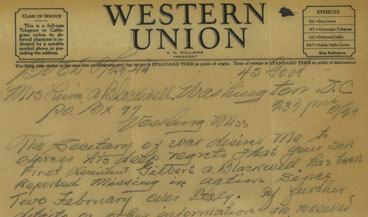 CLASS OF SERVICE
This is a full-rate
Telegram or Cable-
gram unless its de-
ferred character is in-
dicated by a suitable
symbol above or pre-
ceding the address.
WESTERN
UNION
A. N. WILLIAMS
PRESIDENT
SYMBOLS
DL=Day Letter
NT=Overnight Telegram
LC=Deferred Cable
NLT=Cable Night Letter
Ship Radiogram
The filing time shown in the date line on telegrams and day letters is STANDARD TIME at point of origin. Time of receipt is STANDARD TIME at point of destination
45 Govt
Mrs A Blackwell Washington D.C
P.O. Box 97 237 pm
Miss
The Secretary of war desires me to
express his deep regrets that your son
First Lieutenant Gilbert A Blackwell has been
Reported Missing in action Since
Two February over Italy. If further
details or other information is received